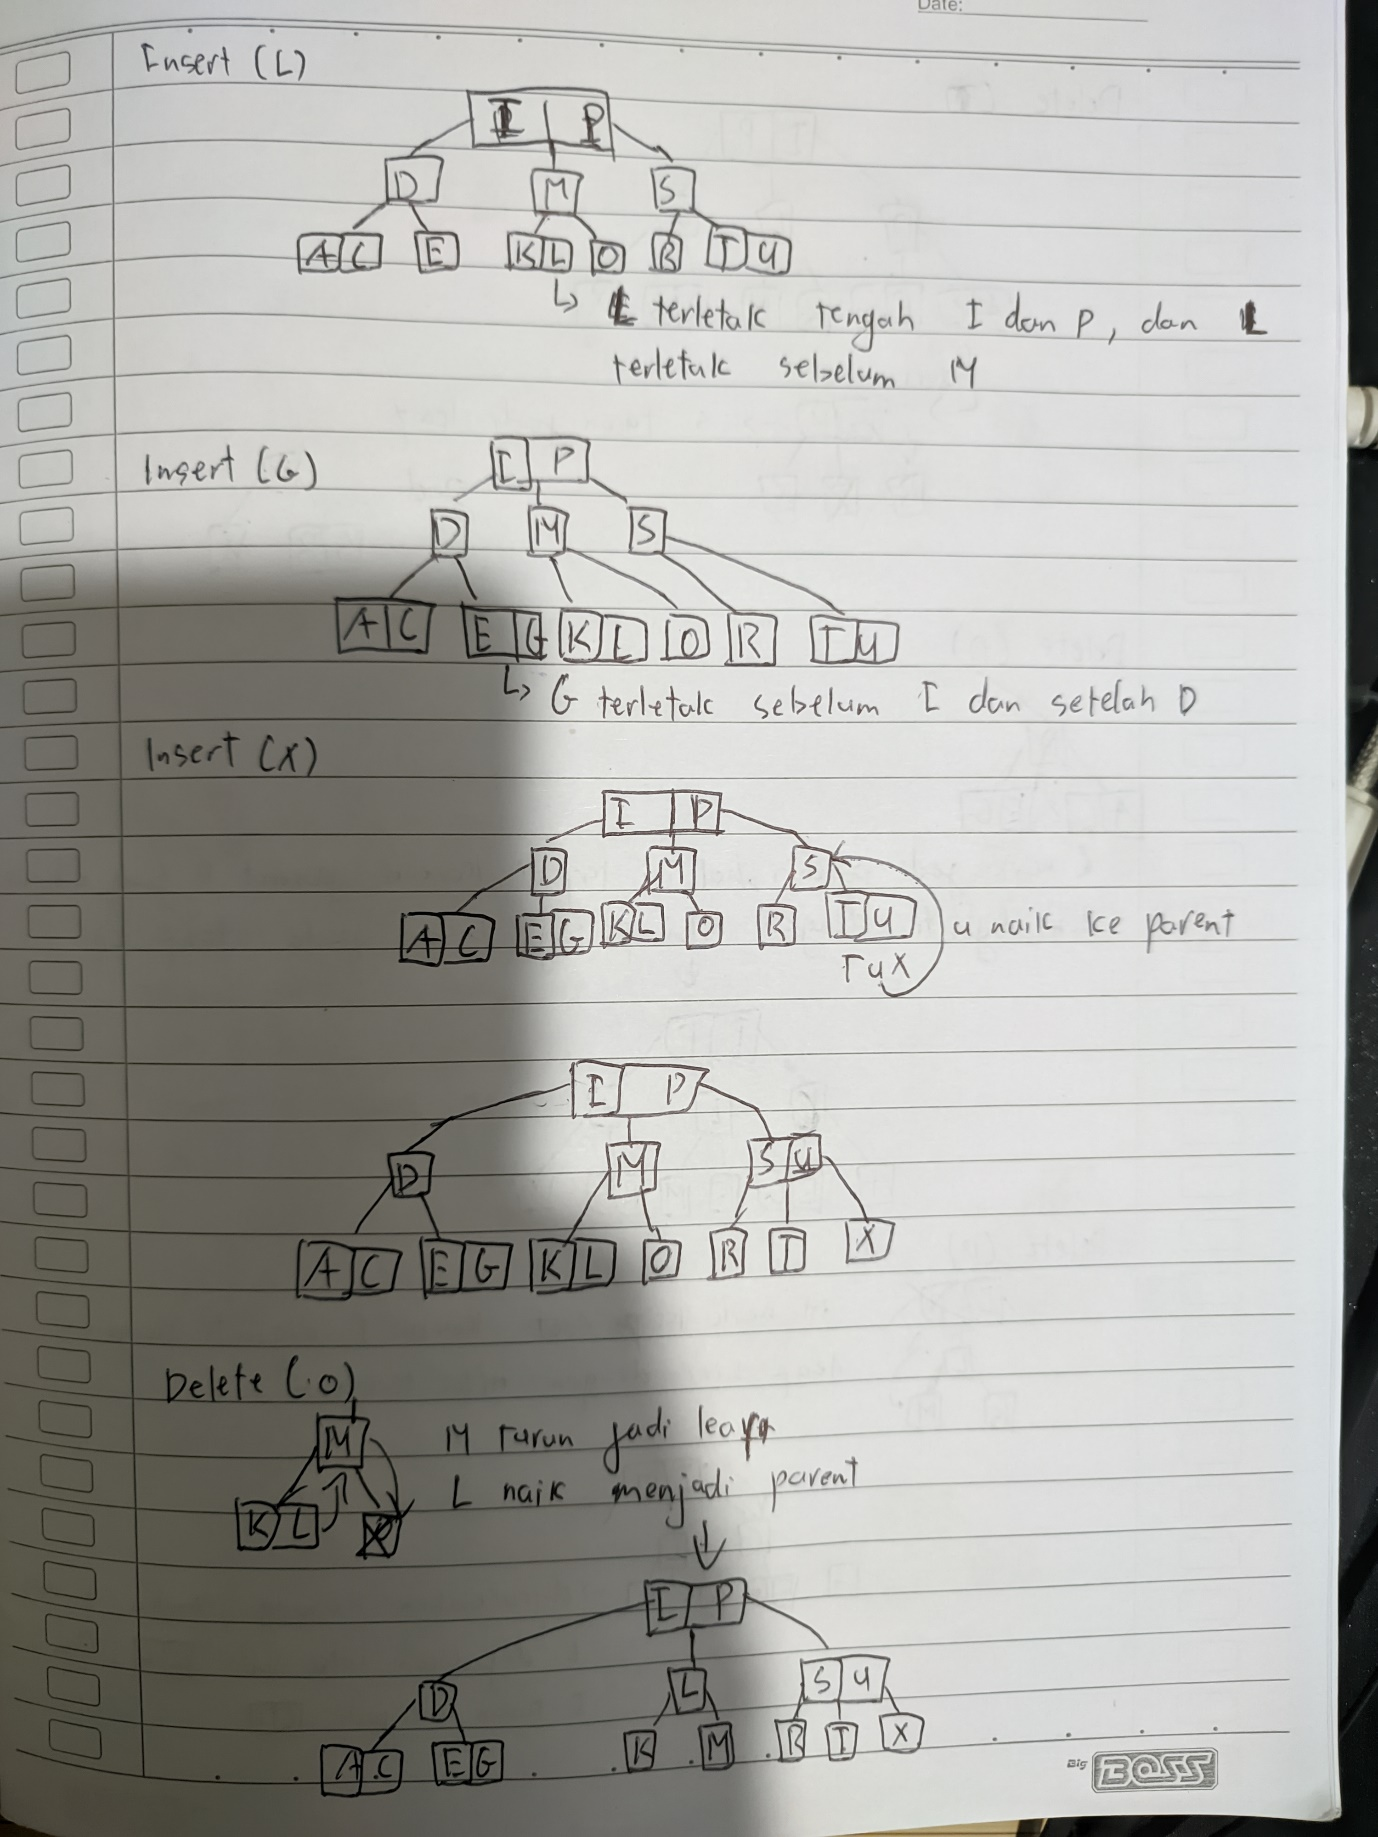 Date:
Insert (L)
I P
D M S
A C E K L O R T U
↳ L terletak tengah I dan P, dan L
terletak sebelum M
Insert (G)
I P
D M S
A C E G K L O R T U
↳ G terletak sebelum I dan setelah D
Insert (X)
I P
D M S
A C E G K L O R T U u naik ke parent
T u X
I P
D M S U
A C E G K L O R T X
Delete (O)
M M turun jadi leaf
K L L naik menjadi parent
I P
D L S U
A C E G K M R T X
Big BOSS